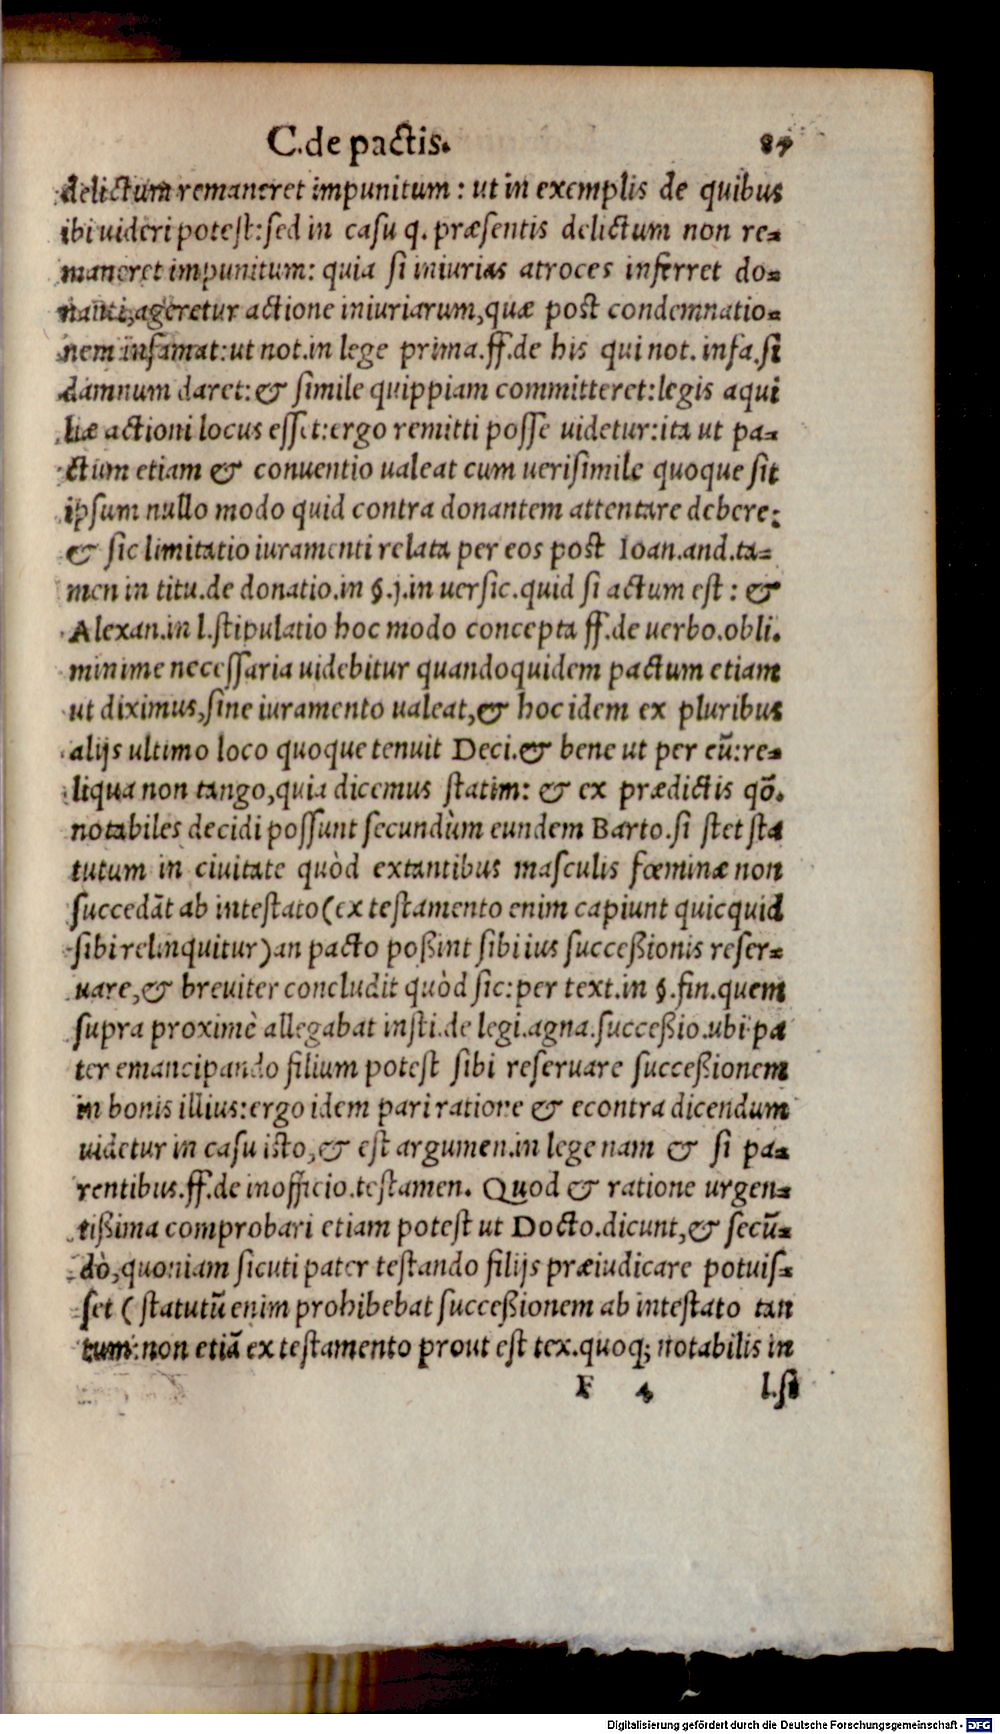 C. de pactis. 87
delictum remaneret impunitum : ut in exemplis de quibus
ibi uideri potest: sed in casu q. præsentis delictum non re-
maneret impunitum: quia si iniurias atroces inferret do-
nanti, ageretur actione iniuriarum, quæ post condemnatio-
nem infamat: ut not. in lege prima. ff. de his qui not. infa. si
damnum daret: & simile quippiam committeret: legis aqui
liæ actioni locus esset: ergo remitti posse uidetur: ita ut pa-
ctum etiam & conuentio ualeat cum uerisimile quoque sit
ipsum nullo modo quid contra donantem attentare debere:
& sic limitatio iuramenti relata per eos post Ioan. and. ta-
men in titu. de donatio. in §. j. in uersic. quid si actum est : &
Alexan. in l. stipulatio hoc modo concepta ff. de uerbo. obli.
minime necessaria uidebitur quandoquidem pactum etiam
ut diximus, sine iuramento ualeat, & hoc idem ex pluribus
alijs ultimo loco quoque tenuit Deci. & bene ut per eũ: re-
liqua non tango, quia dicemus statim: & ex prædictis qõ.
notabiles decidi possunt secundùm eundem Barto. si stet sta
tutum in ciuitate quòd extantibus masculis fœminæ non
succedãt ab intestato (ex testamento enim capiunt quicquid
sibi relinquitur) an pacto poßint sibi ius succeßionis reser-
uare, & breuiter concludit quòd sic: per text. in §. fin. quem
supra proximè allegabat insti. de legi. agna. succeßio. ubi pa
ter emancipando filium potest sibi reseruare succeßionem
in bonis illius: ergo idem pari ratione & econtra dicendum
uidetur in casu isto, & est argumen. in lege nam & si pa-
rentibus. ff. de inofficio. testamen. Quod & ratione urgen-
tißima comprobari etiam potest ut Docto. dicunt, & secũ-
dò, quoniam sicuti pater testando filijs præiudicare potuis-
set ( statutũ enim prohibebat succeßionem ab intestato tan
tum: non etiã ex testamento prout est tex. quoq; notabilis in
F 4 l. si
Digitalisierung gefördert durch die Deutsche Forschungsgemeinschaft - DFG